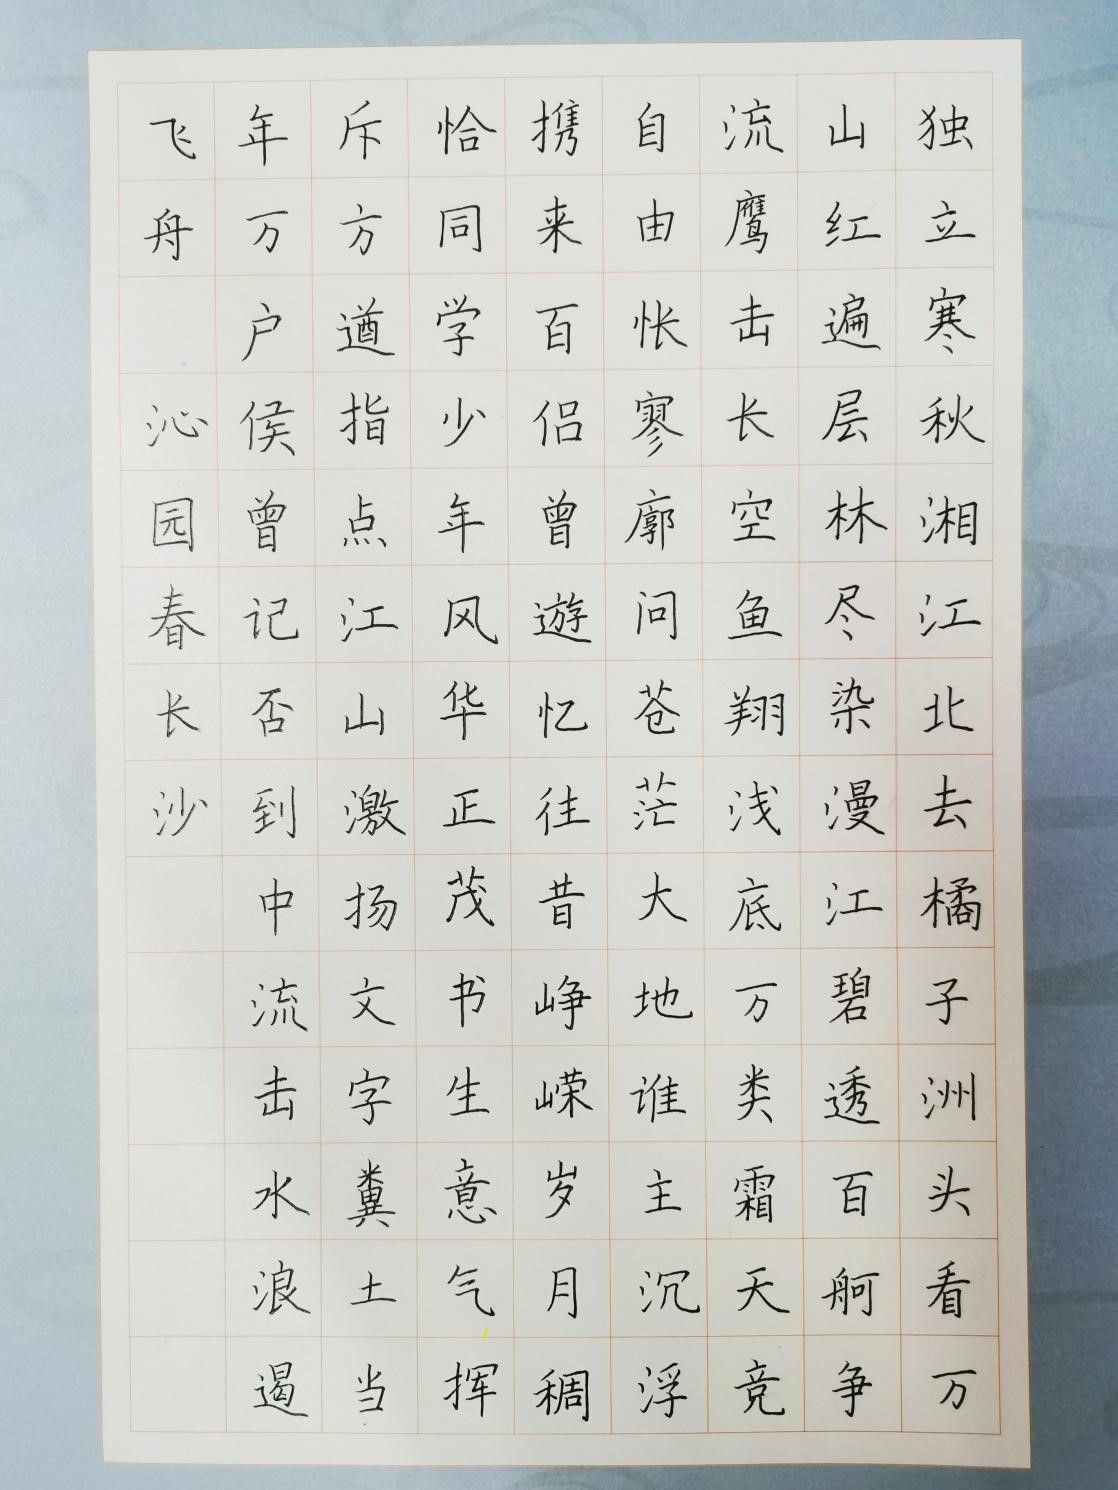 独立寒秋湘江北去橘子洲头看万
山红遍层林尽染漫江碧透百舸争
流鹰击长空鱼翔浅底万类霜天竞
自由怅寥廓问苍茫大地谁主沉浮
携来百侣曾遊忆往昔峥嵘岁月稠
恰同学少年风华正茂书生意气挥
斥方遒指点江山激扬文字粪土当
年万户侯曾记否到中流击水浪遏
飞舟 沁园春长沙